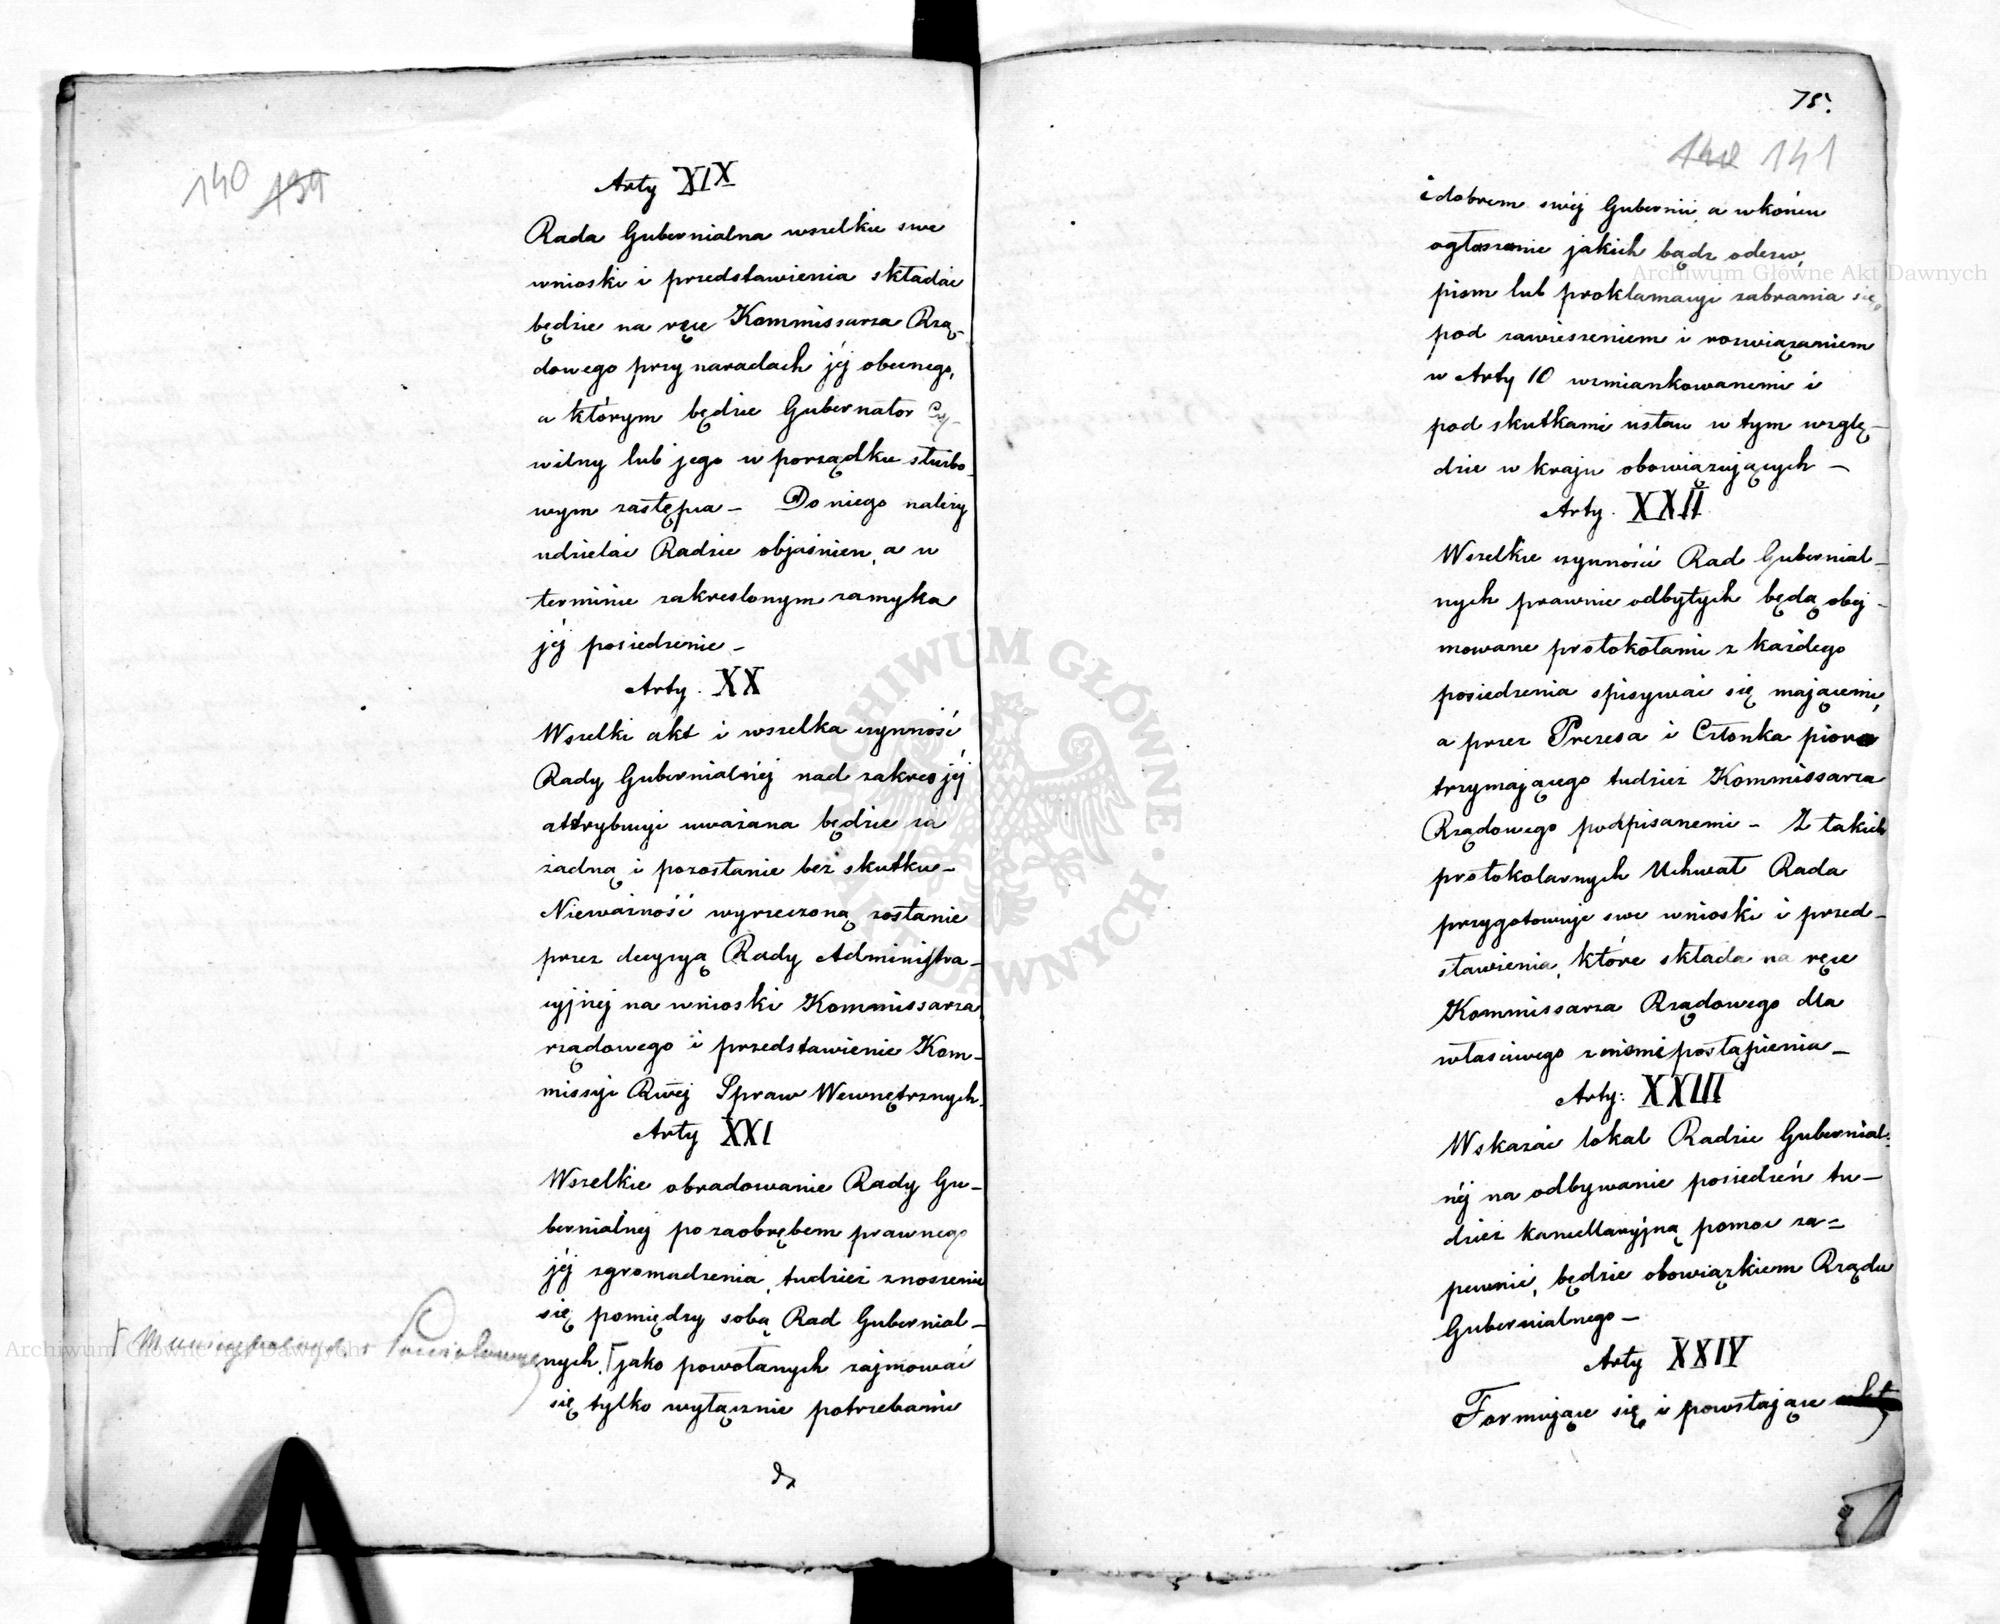 140 139
Arty XIX
Rada Gubernialna wszelkie swe
wnioski i przedstawienia składać
będzie na ręce Kommissarza Rzą-
dowego przy naradach jéj obecnego,
a którym będzie Gubernator Cy-
wilny lub jego w porządku służbo-
wym zastępca – Do niego należy
udzielać Radzie objaśnień, a w
terminie zakreslonym zamyka
jéj posiedzenie –
Arty. XX
Wszelki akt i wszelka czynność
Rady Gubernialnéj nad zakres jéj
attrybucyi uważana będzie za
żadną i pozostanie bez skutku –
Nieważność wyrzeczoną zostanie
przez decyzyą Rady Administra-
cyjnéj na wnioski Kommissarza
rządowego i przedstawienie Kom-
missyi Rwéj Spraw Wewnętrznych.
Arty XXI
Wszelkie obradowanie Rady Gu-
bernialnéj po za obrębem prawnego
jéj zgromadzenia, tudzież znoszenie
się pomiędzy sobą Rad Gubernial-
nych, Γ jako powołanych zajmować
się tylko wyłącznie potrzebami
Γ Municypalnych i Powiatowych
75.
140 141
i dobrem swéj Gubernii, a w końcu
ogłaszanie jakich bądz odezw,
pism lub proklamacyi zabrania się,
pod zawieszeniem i rozwiązaniem
w Arty 10 wzmiankowanemi i
pod skutkami ustaw w tym wzglę-
dzie w kraju obowiązujących –
Arty. XXII
Wszelkie czynności Rad Gubernial-
nych prawnie odbytych będą obej-
mowane protokołami z każdego
posiedzenia spisywać się mającemi,
a przez Prezesa i Członka pióro
trzymającego tudzież Kommissarza
Rządowego podpisanemi – Z takich
protokolarnych Uchwał Rada
przygotowuje swe wnioski i przed-
stawienia, które składa na ręce
Kommissarza Rządowego dla
właściwego z niemi postąpienia –
Arty: XXIII
Wskazać lokal Radzie Gubernial-
néj na odbywanie posiedzeń tu-
dzież kancellaryjną pomoc za=
pewnić, będzie obowiązkiem Rządu
Gubernialnego –
Arty XXIV
Formujące się i powstające
Archiwum Główne Akt Dawnych
Archiwum Główne Akt Dawnych
ARCHIWUM GŁÓWNE AKT DAWNYCH